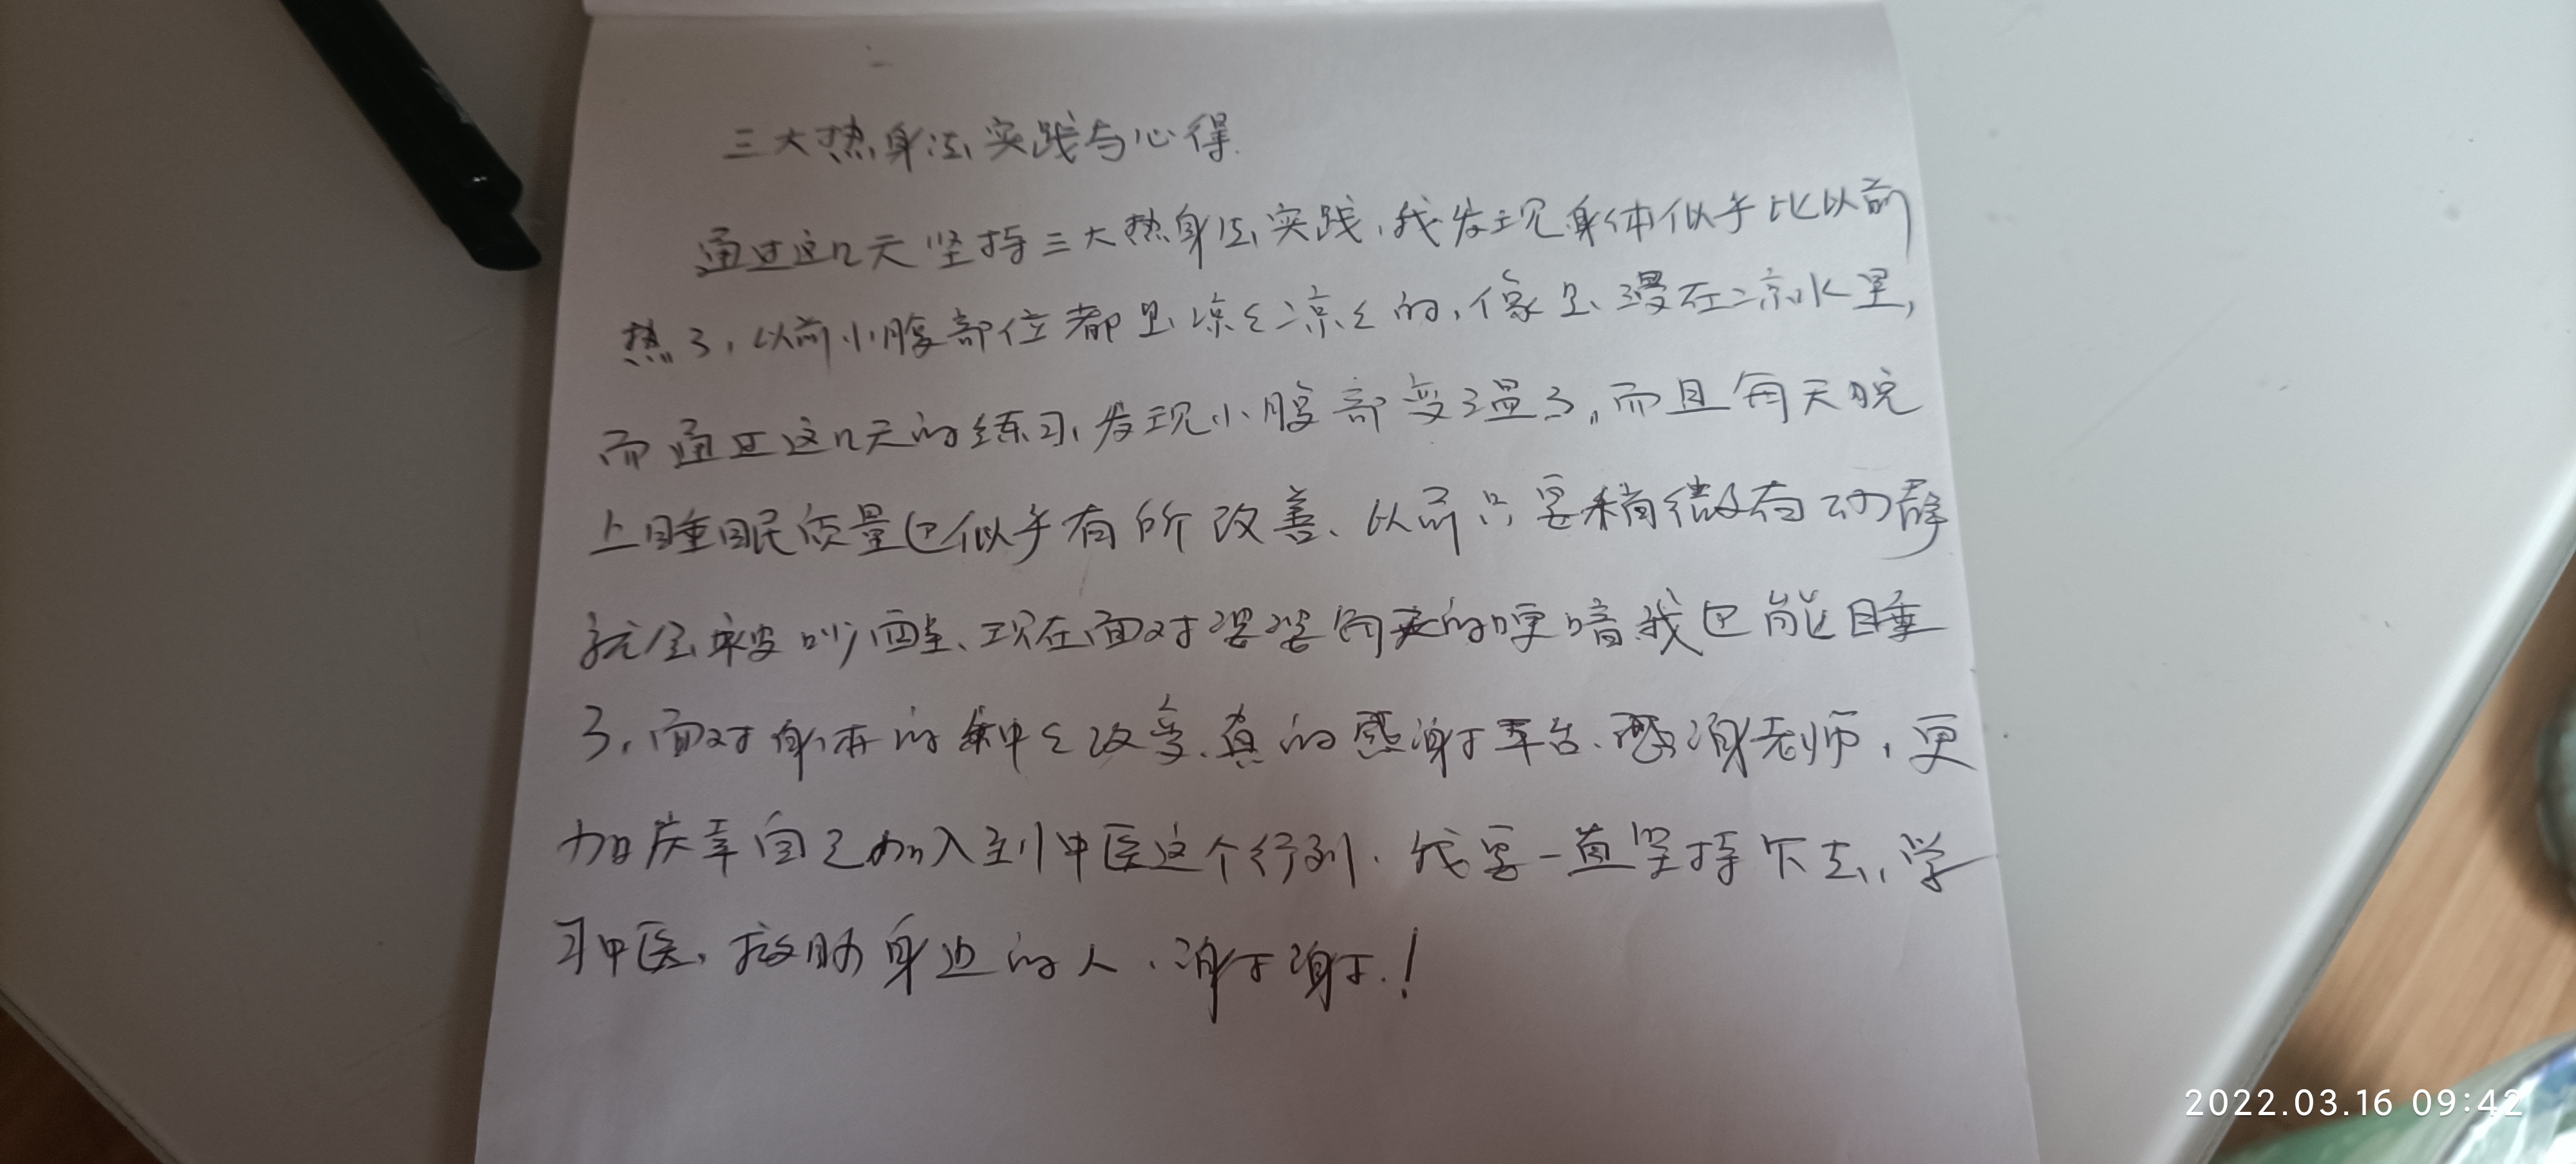 三大热身法实践与心得.
通过这几天坚持三大热身法实践,我发现身体似乎比以前
热了,以前小腹部位都是凉凉凉凉的,像是浸在凉水里,
而通过这几天的练习,发现小腹部变温了,而且每天晚
上睡眠质量也似乎有所改善、以前只要稍微有动静
就会被吵醒、现在面对婆婆每天的噪音我也能睡
了,面对身体的种种改变、真的感谢平台、感谢老师,更
加庆幸自己加入到中医这个行列.我要一直坚持下去,学
习中医,救助身边的人.谢谢.!
2022.03.16 09:42